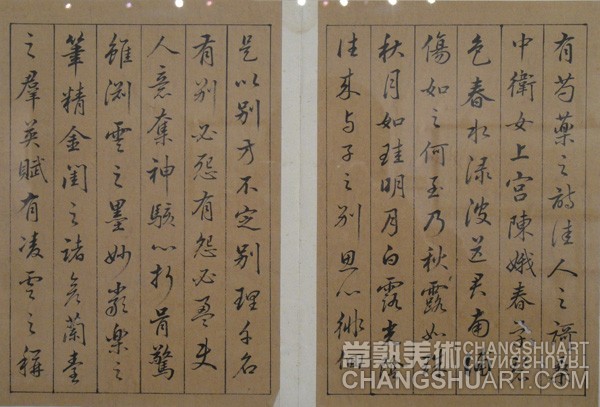 有芍藥之詩佳人之謌桑
中衛女上宮陳娥春草碧
色春水渌波送君南浦
傷如之何至乃秋露如珠
秋月如珪明月白露光陰
往來与子之別思心徘徊
是以別方不定別理千名
有別必怨有怨必盈使
人意奪神駭心折骨驚
雖渊雲之墨妙嚴樂之
筆精金閨之諸彥蘭臺
之羣英賦有凌雲之稱
常熟美術 CHANGSHUART
CHANGSHUART.COM